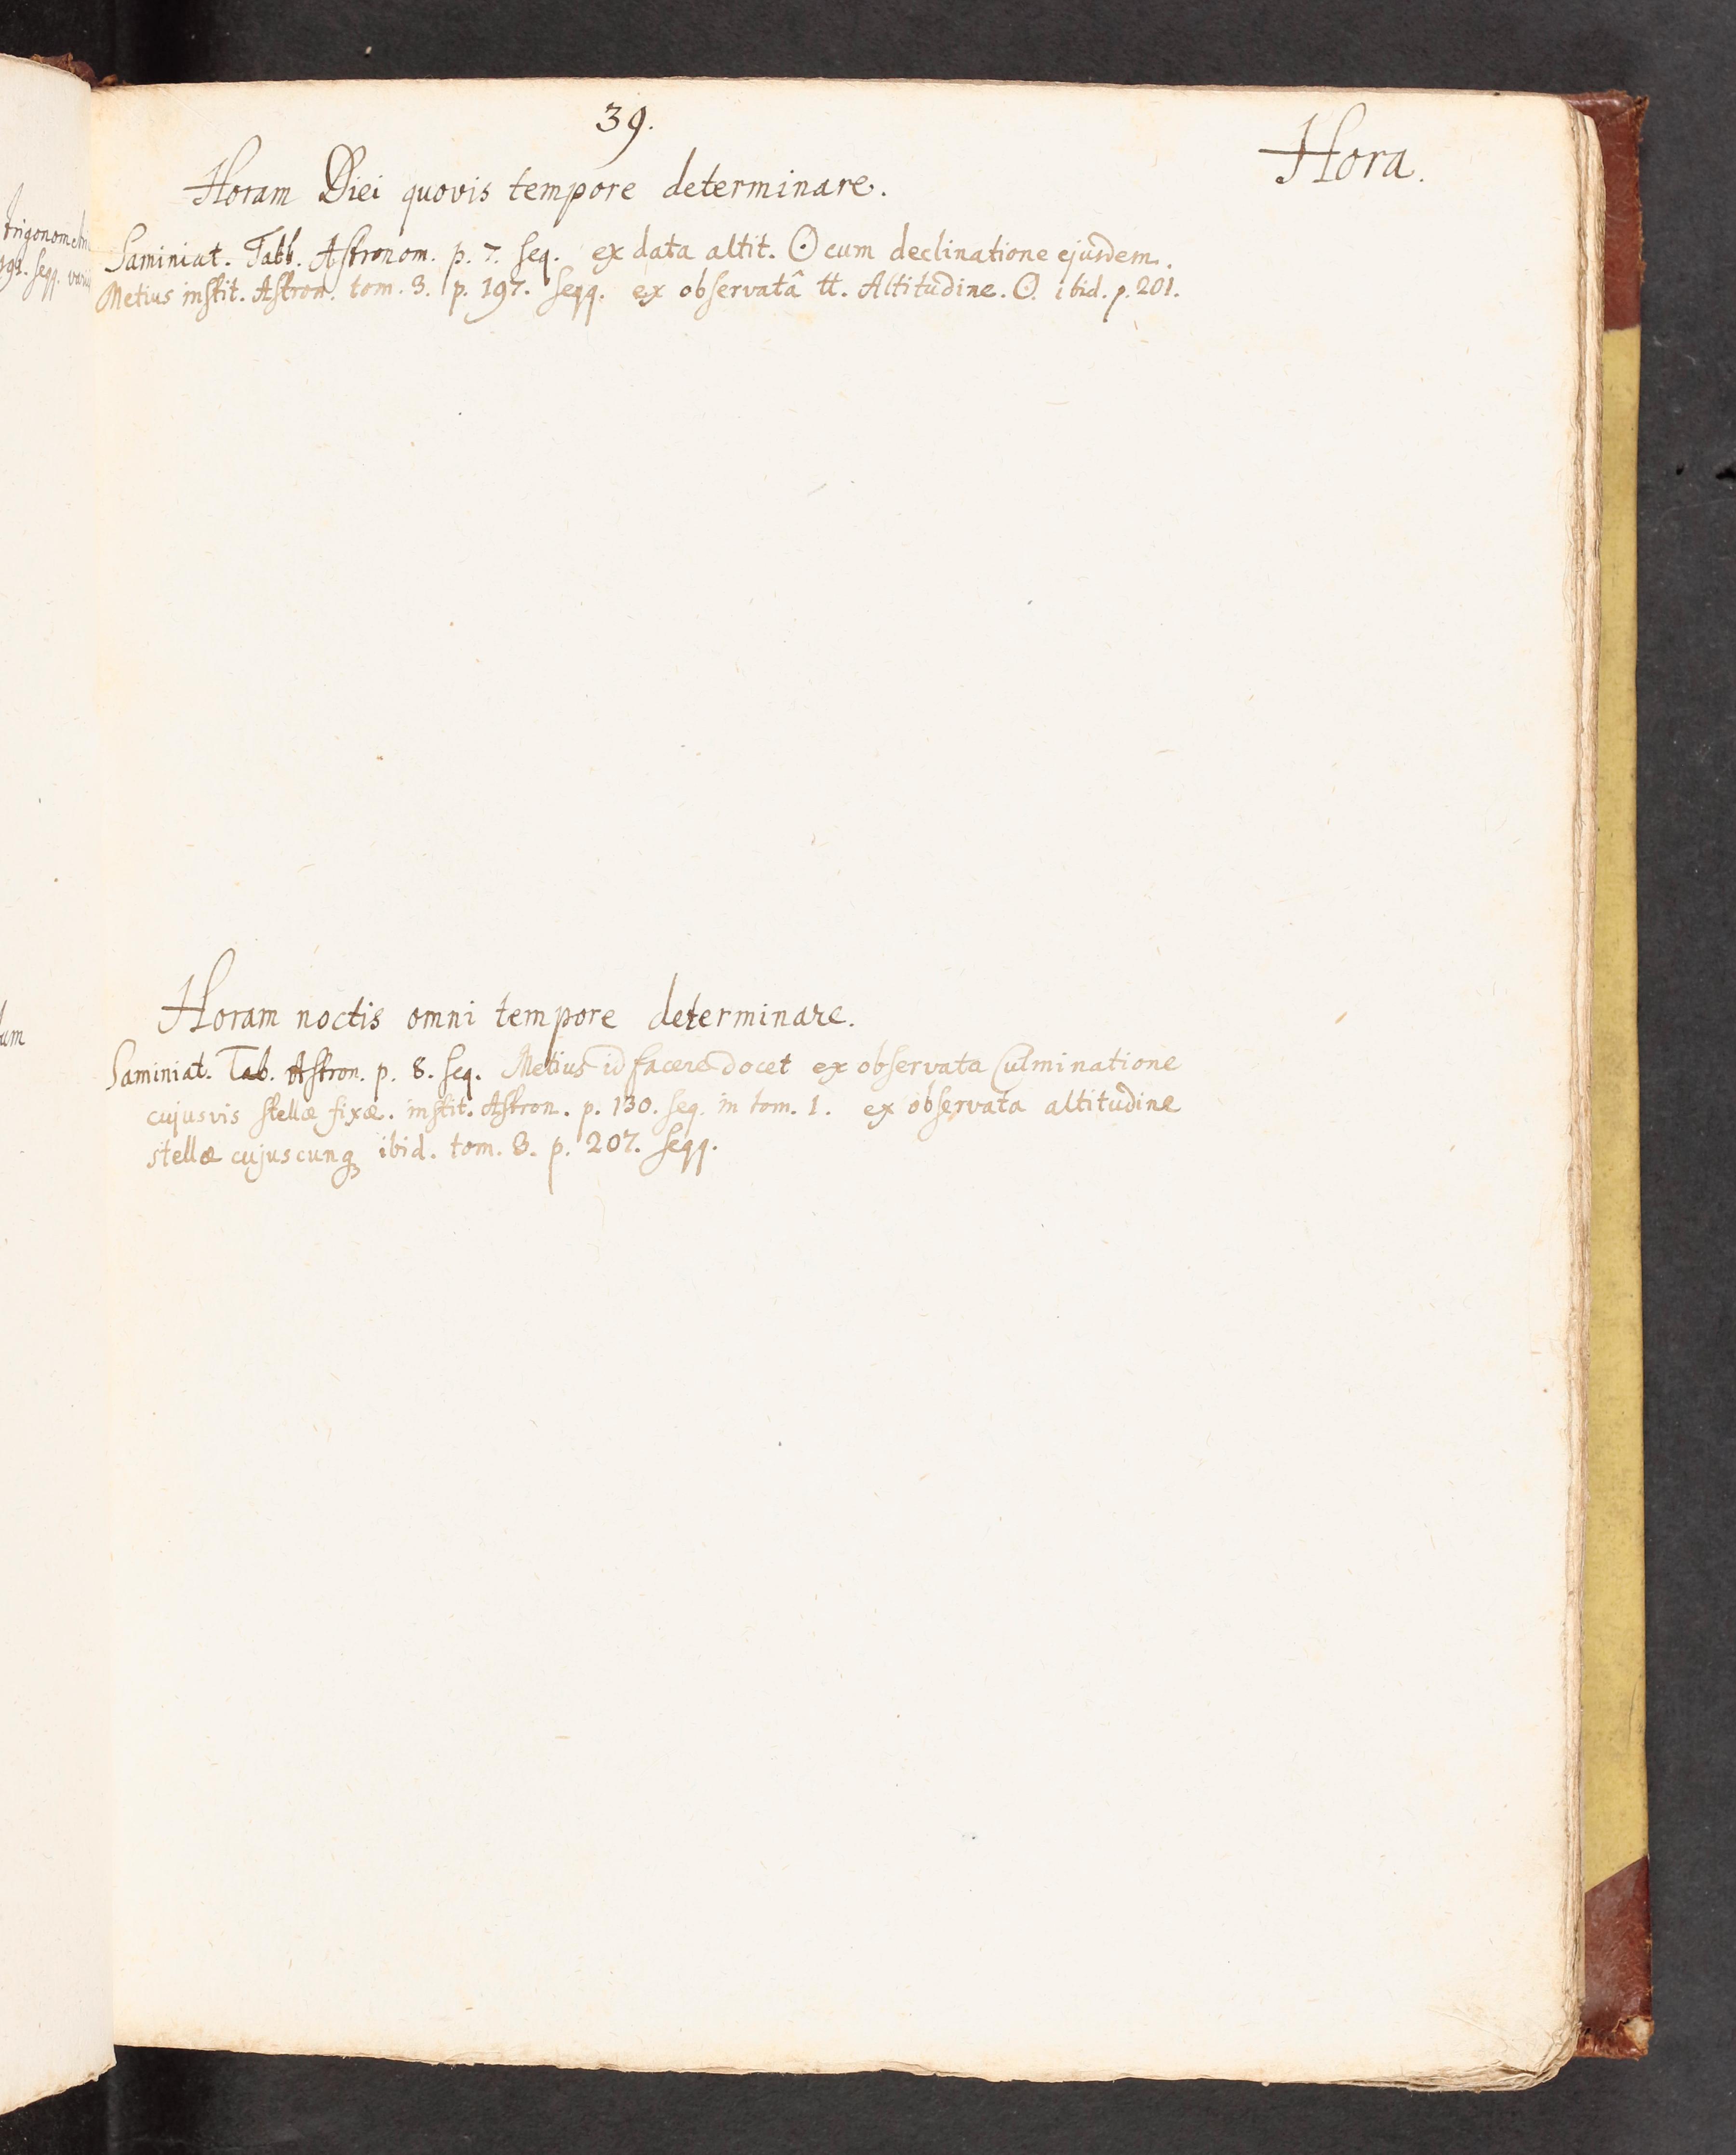 39.
Hora.
Horam Diei quovis tempore determinare.
Saminiat. Tabb. Astronom. p. 7. seq. ex data altit. ☉ cum declinatione ejusdem.
Metius instit. Astron. tom. 3. p. 197. seqq. ex observatâ tt. Altitudine. ☉. ibid. p. 201.
Horam noctis omni tempore determinare.
Saminiat. Tab. Astron. p. 8. seq. Metius id facere docet ex observata Culminatione
cujusvis stellæ fixæ. instit. Astron. p. 130. seq. in tom. 1. ex observata altitudine
stellæ cujuscunq; ibid. tom. 3. p. 207. seqq.